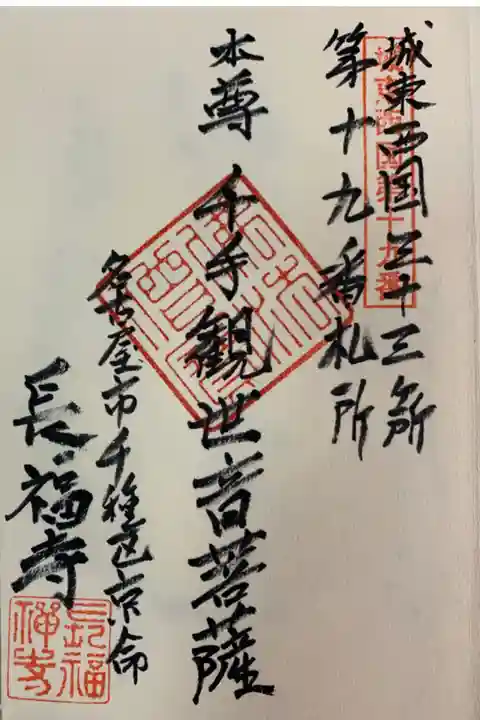 城東西国三十三ヶ所
第十九番札所
本尊 千手観世音菩薩
名古屋市千種区京命
長福寺
城東西国第十九番
長福禅寺